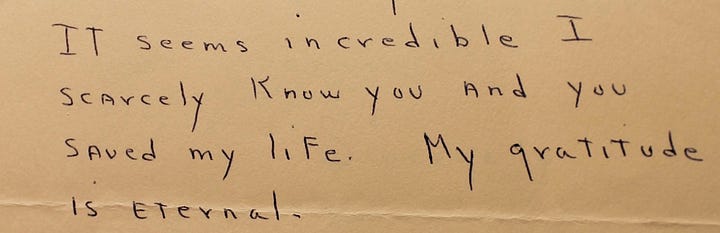 IT seems incredible I
scarcely know you And you
SAved my liFe. My gratitude
is ETernal.